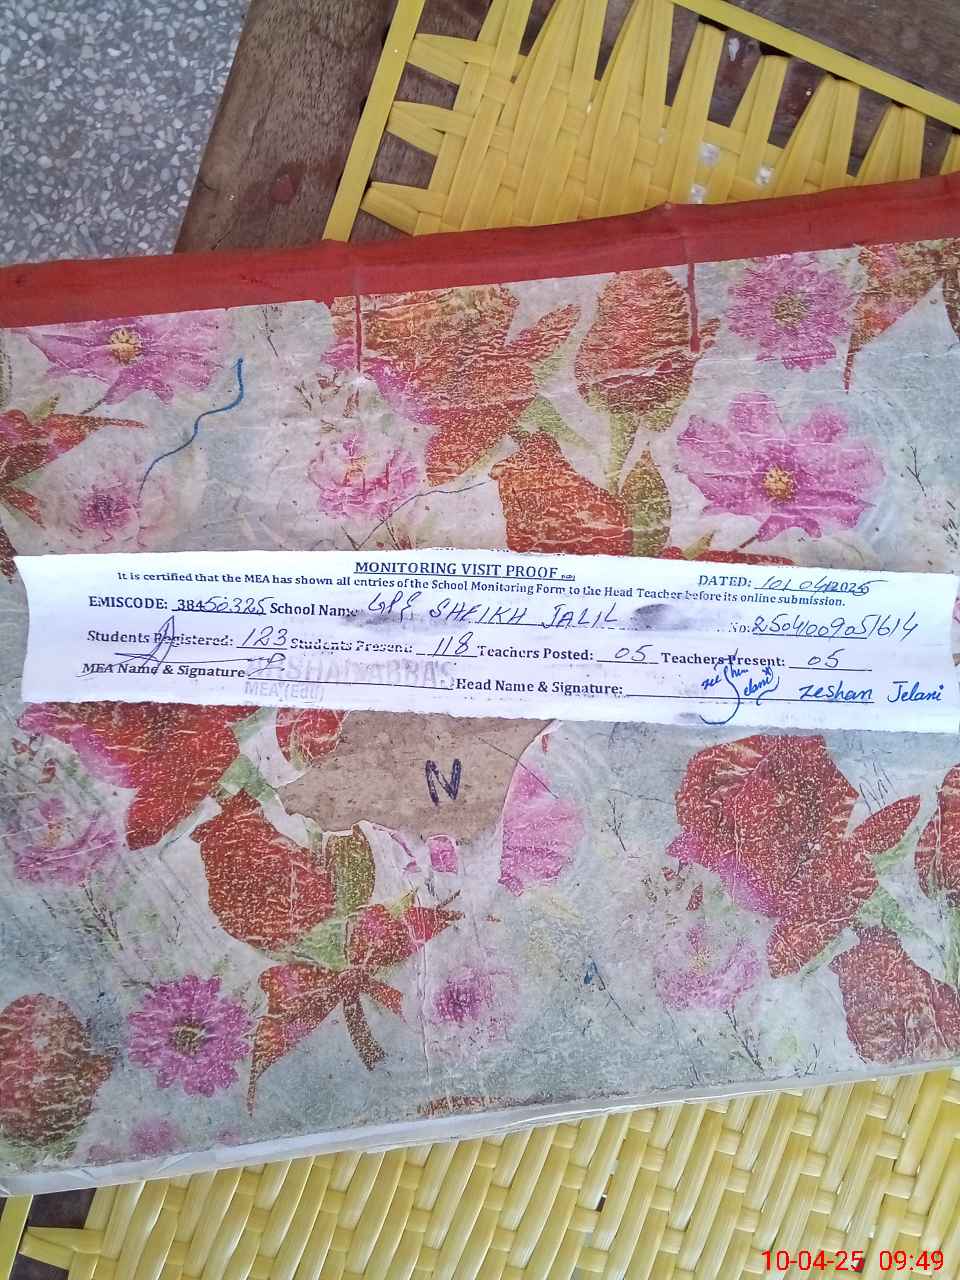 MONITORING VISIT PROOF
DATED: 10/04/2025
It is certified that the MEA has shown all entries of the School Monitoring Form to the Head Teacher before its online submission.
EMISCODE: 38450325 School Name: GPS SHEIKH JALIL No: 25041009051614
Students Registered: 123 Students Present: 118 Teachers Posted: 05 Teachers Present: 05
MEA Name & Signature: ARSHAD ABBAS Head Name & Signature: Zeshan Jelani
MEA (Edu)
N
10-04-25 09:49